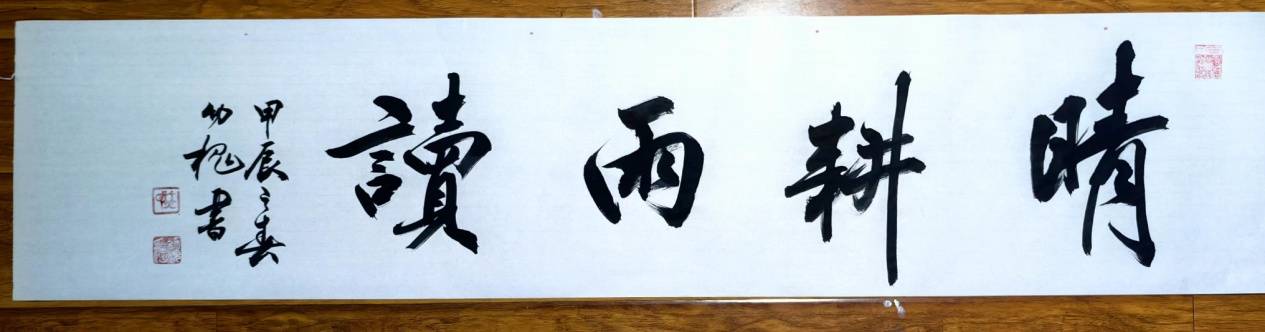 晴耕雨讀
甲辰之春
幼槐書